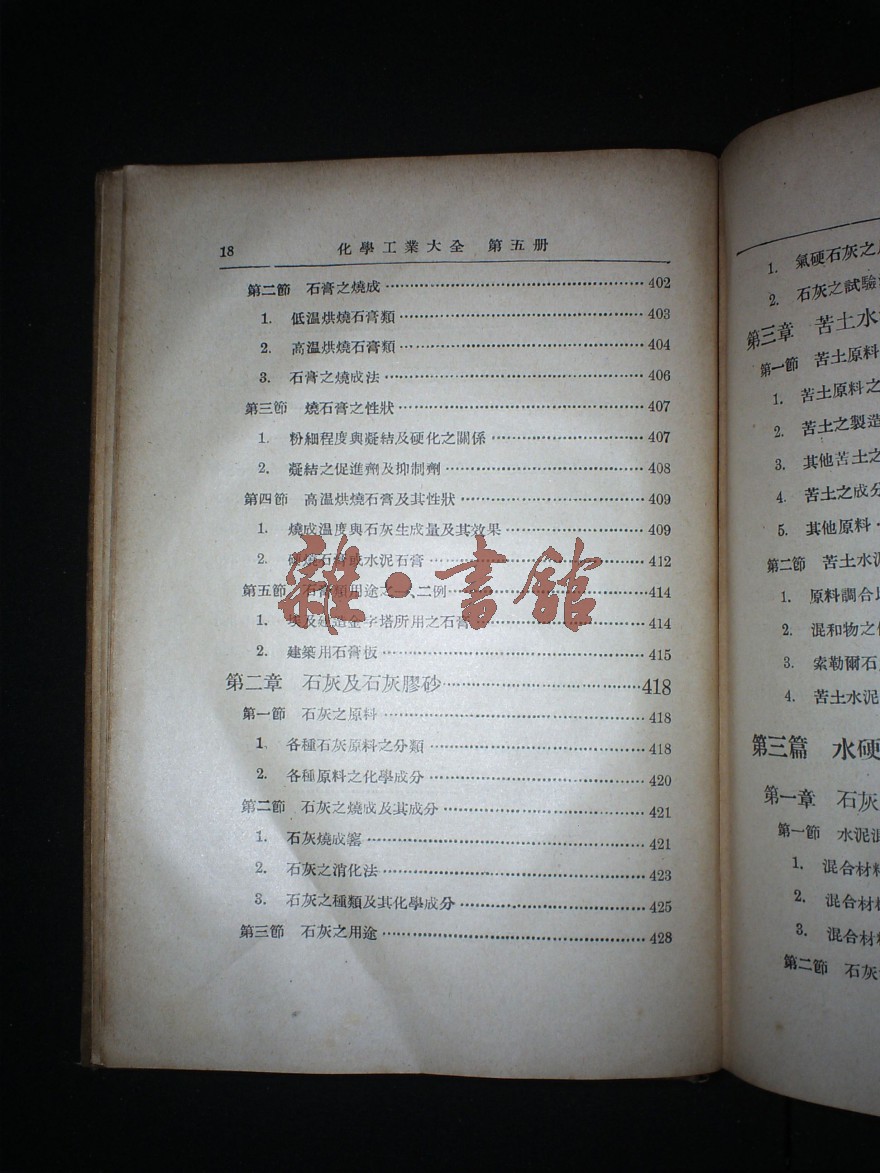 18 化學工業大全 第五册
第二節 石膏之燒成 402
1. 低溫烘燒石膏類 403
2. 高溫烘燒石膏類 404
3. 石膏之燒成法 406
第三節 燒石膏之性狀 407
1. 粉細程度與凝結及硬化之關係 407
2. 凝結之促進劑及抑制劑 408
第四節 高溫烘燒石膏及其性狀 409
1. 燒成溫度與石灰生成量及其效果 409
2. 燒石膏或水泥石膏 412
第五節 石膏類用途之一、二例 414
1. 埃及建造金字塔所用之石膏 414
2. 建築用石膏板 415
第二章 石灰及石灰膠砂 418
第一節 石灰之原料 418
1. 各種石灰原料之分類 418
2. 各種原料之化學成分 420
第二節 石灰之燒成及其成分 421
1. 石灰燒成窰 421
2. 石灰之消化法 423
3. 石灰之種類及其化學成分 425
第三節 石灰之用途 428
雜·書館
1. 氣硬石灰之
2. 石灰之試驗
第三章 苦土水
第一節 苦土原料
1. 苦土原料之
2. 苦土之製造
3. 其他苦土之
4. 苦土之成分
5. 其他原料
第二節 苦土水泥
1. 原料調合
2. 混和物之
3. 索勒爾石
4. 苦土水泥
第三篇 水硬
第一章 石灰
第一節 水泥混
1. 混合材料
2. 混合材
3. 混合材料
第二節 石灰